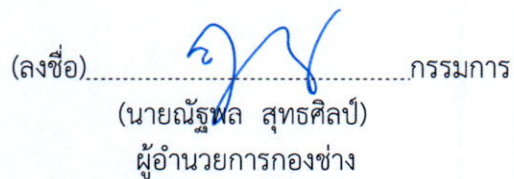 (ลงชื่อ)........................................................กรรมการ
(นายณัฐพล สุทธศิลป์)
ผู้อำนวยการกองช่าง